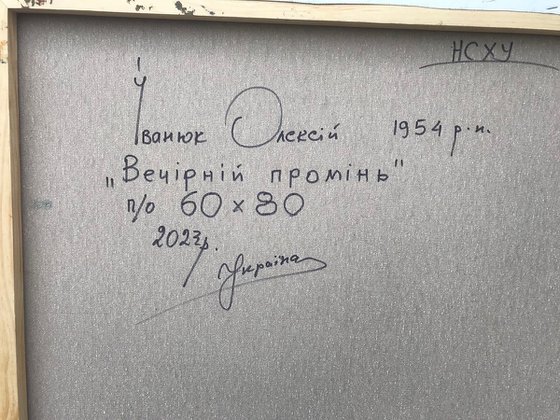 НСХУ
Іванюк Олексій 1954 р.н.
„Вечірній промінь"
п/о 60 х 80
2023р.
Україна